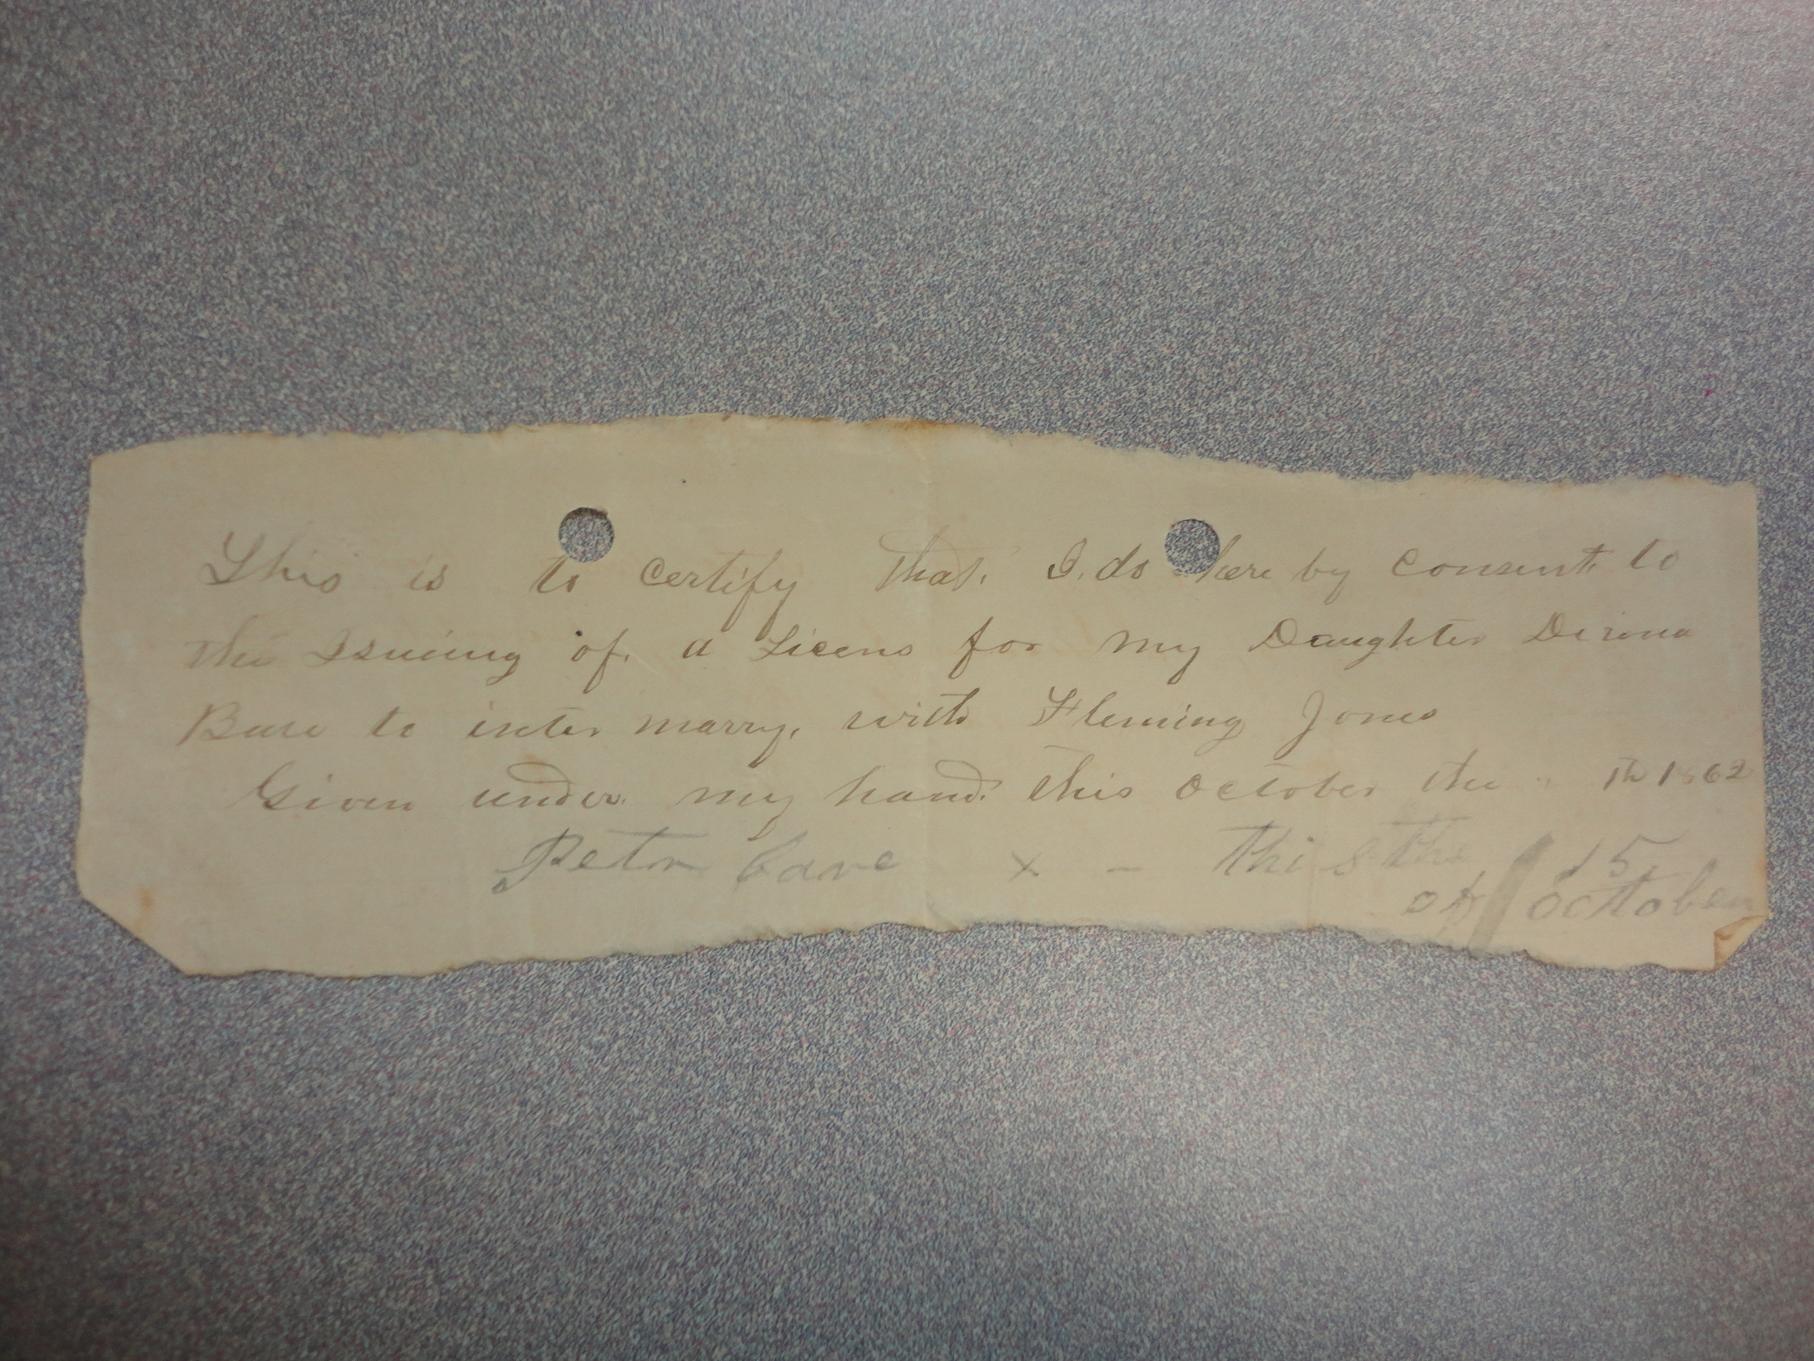 This is to certify that. I. do here by consent to
the Issuing of. a Licens for my Daughter Dirona
to inter marry, with Fleming Jones
Given under my hand this October the th 1862
Peton Cave x - this the 15
of october